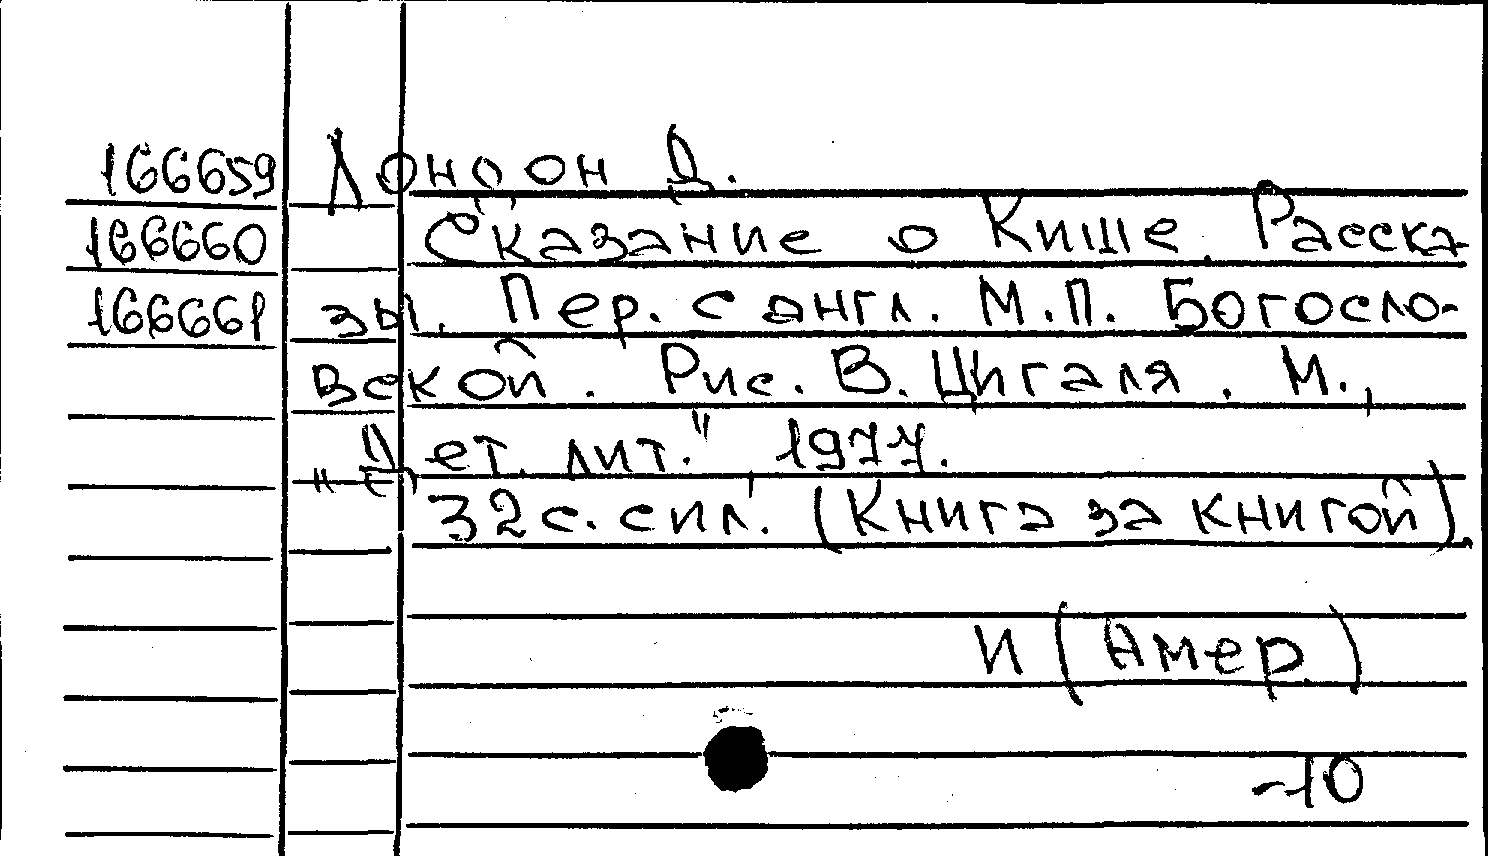 166659 Лондон Д.
166660 Сказание о Кише. Расска-
166661 зы. Пер. с англ. М.П. Богосло-
вской. Рис. В. Цигаля. М.,
"Дет. лит." 1977.
32 с. с ил. (Книга за книгой).
И (Амер.)
-10